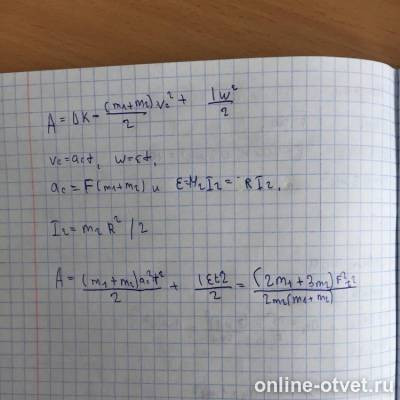 A = ΔK - (m₁+m₂)Vc²/2 + Iω²/2
vc=act, ω=εt,
ac = F(m₁+m₂) и ε=M₂I₂ = RI₂,
I₂ = m₂R²/2
A = (m₁+m₂)ac²t²/2 + Iεt2/2 = (2m₁+3m₂)F²t²/2m₂(m₁+m₂)
online-otvet.ru